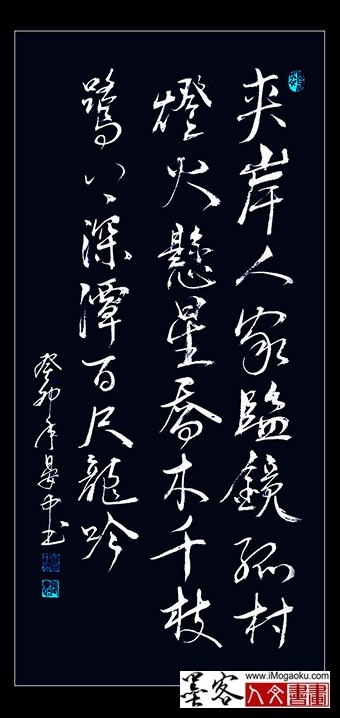 夹岸人家臨鏡孤村
燈火懸星喬木千枝
鷺下深潭百尺龍吟
癸卯年晏中书
www.iMogaoku.com
墨客人文書畫